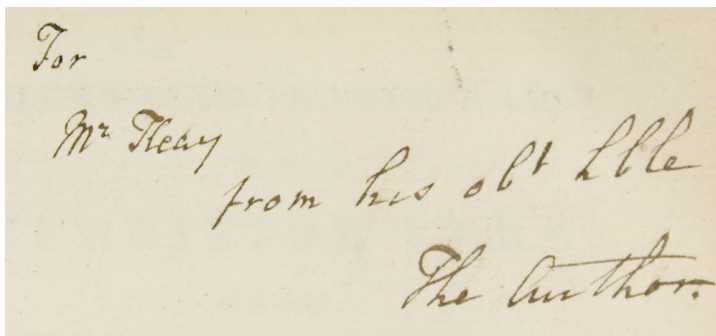 For
Mr Keay
from his obt hble
The Author.